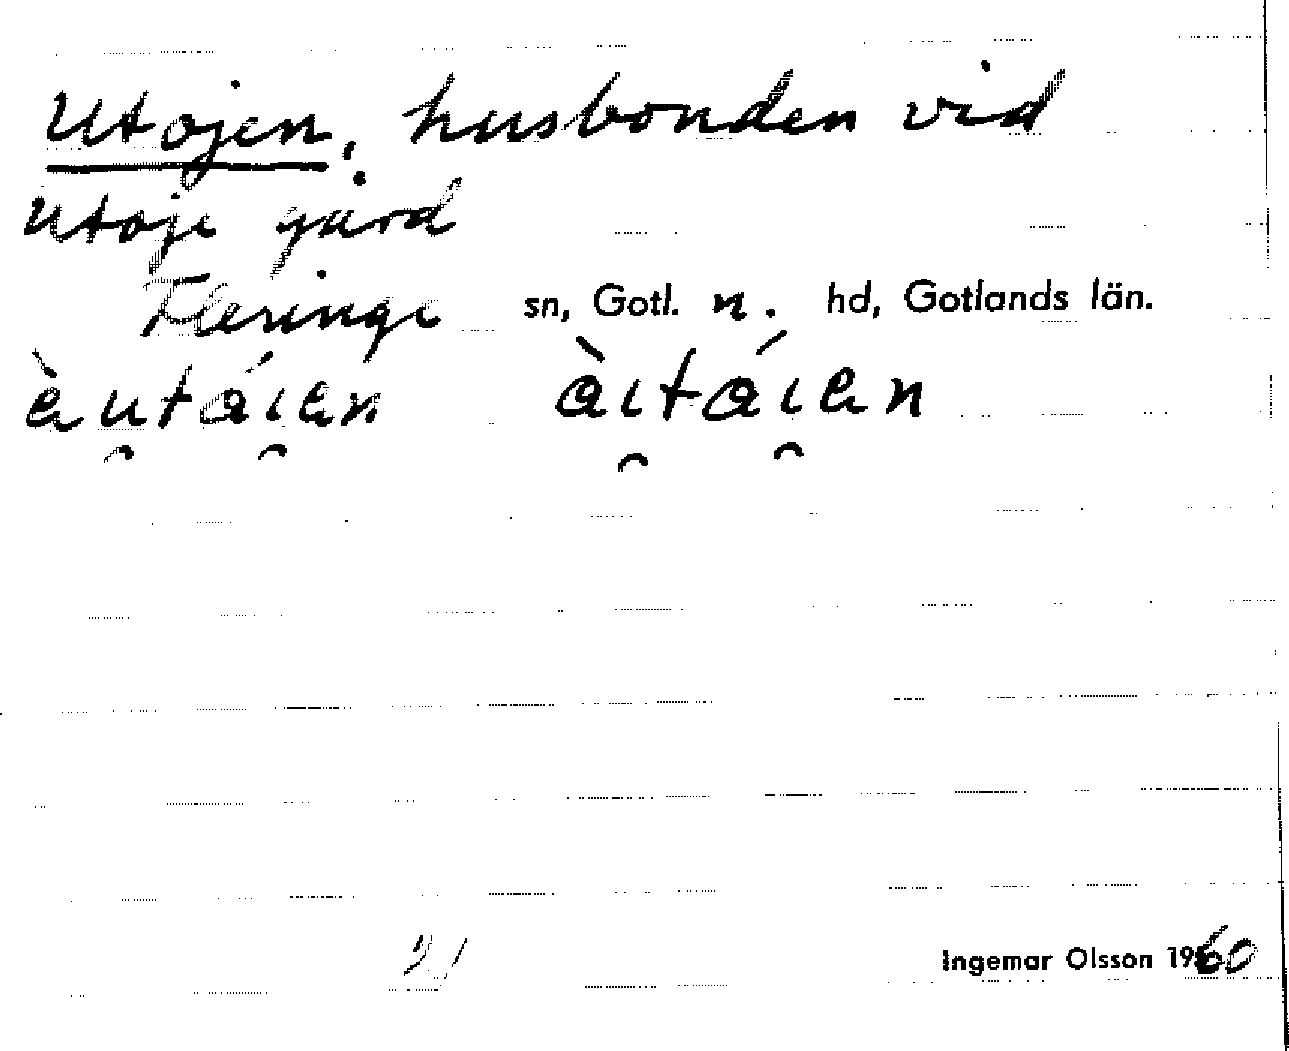 Utojen, husbonden vid
Utoje gård
Fleringe sn, Gotl. n. hd, Gotlands län.
àu̯tái̯en ài̯tái̯en
Ingemar Olsson 1960